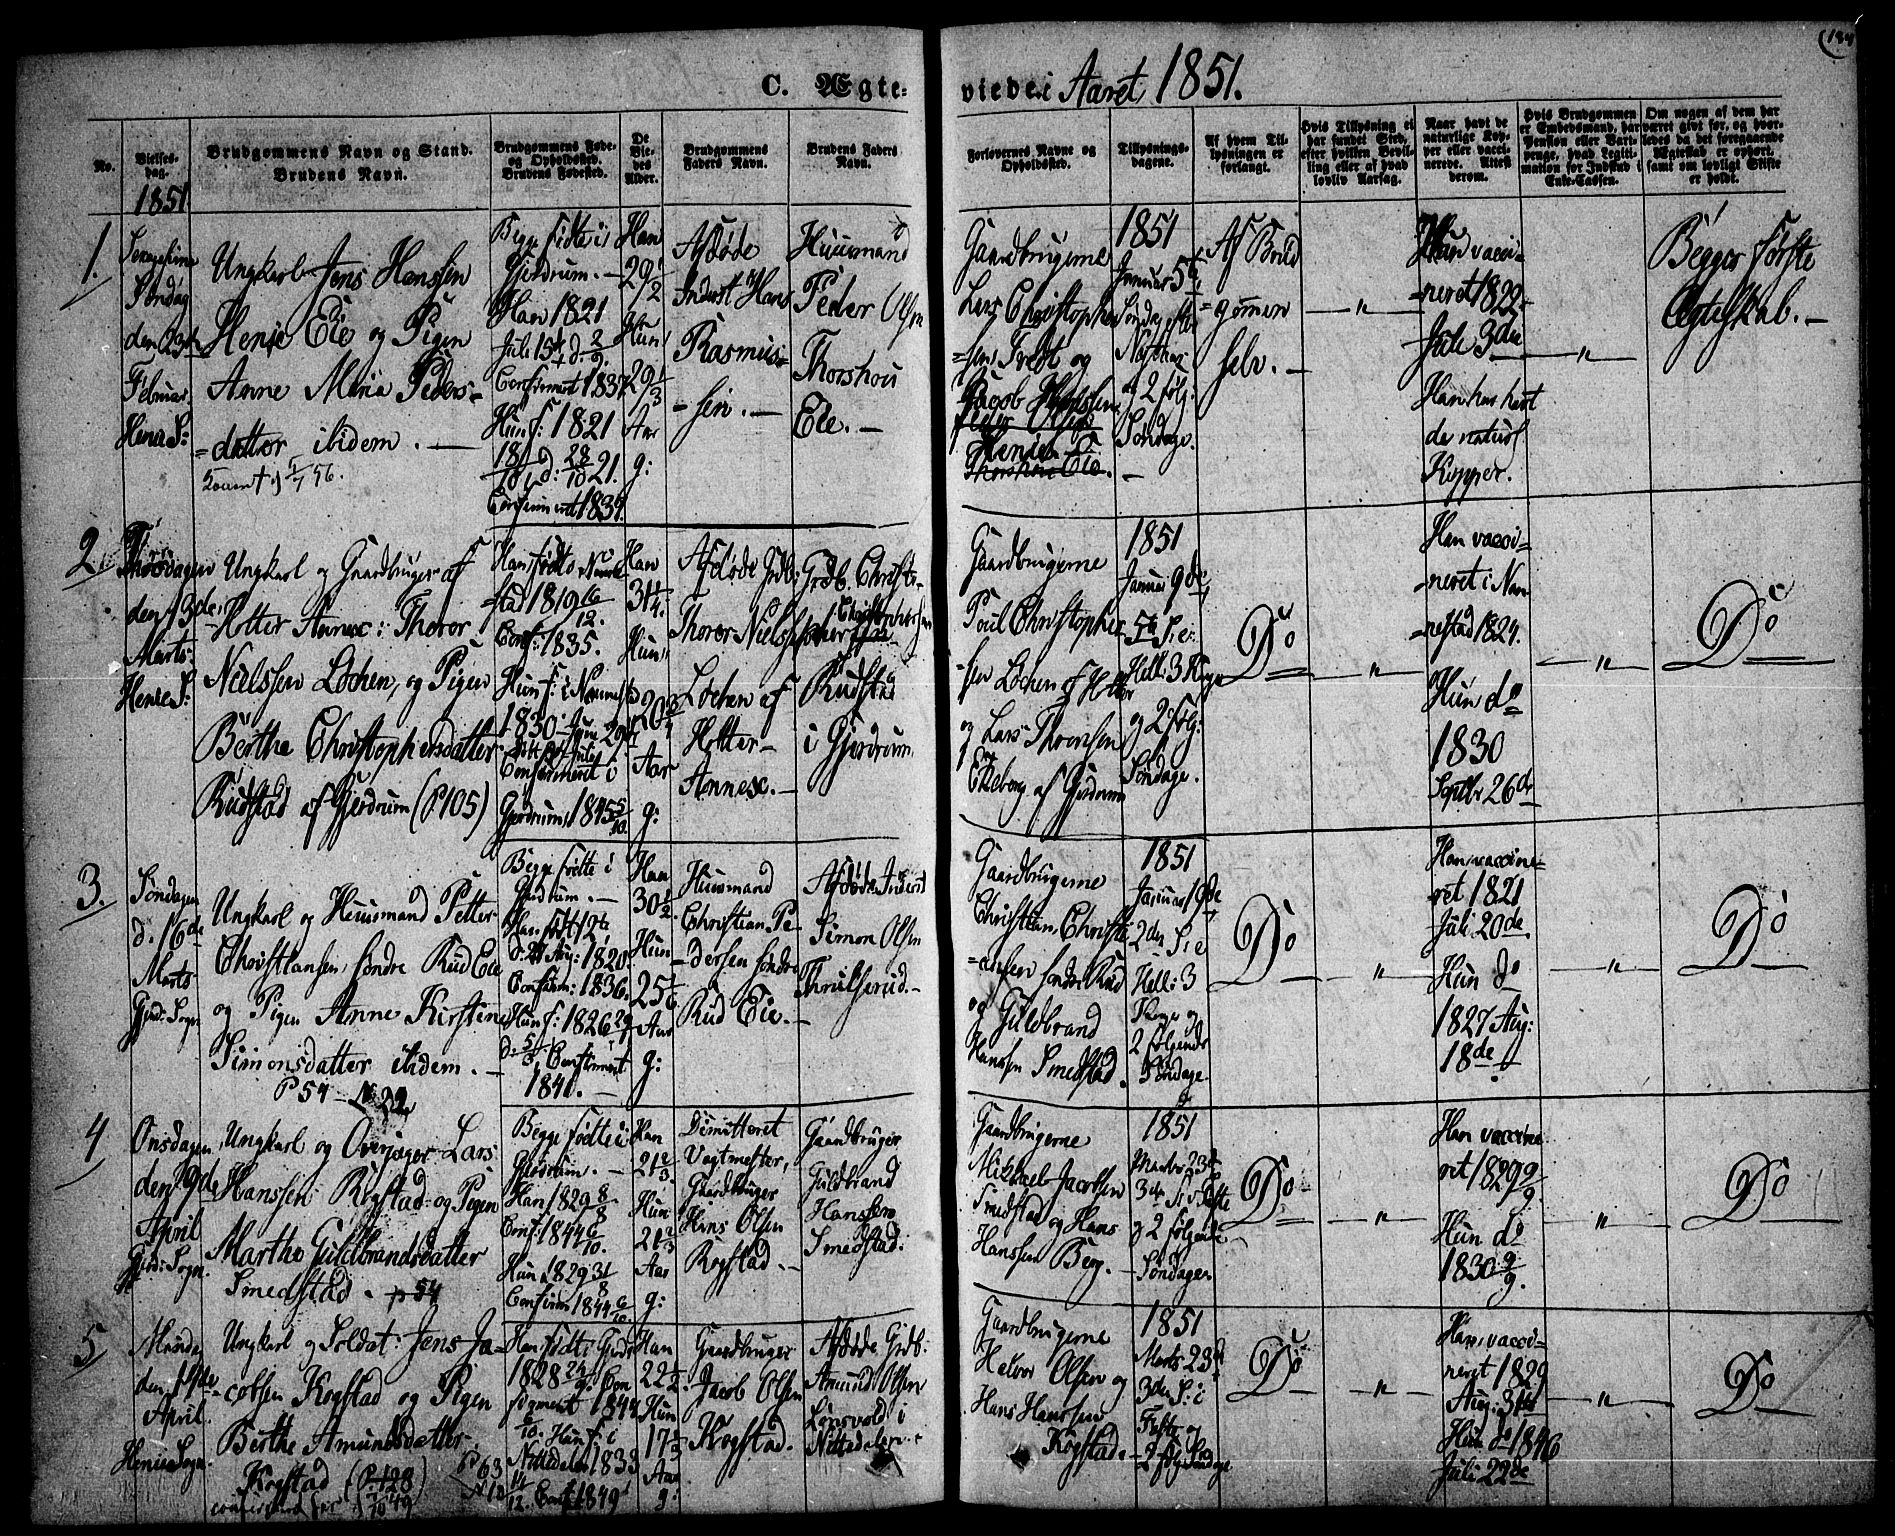 184
C. Ægte-
viede i Aaret 1851.
No.
Vielses-
dag.
1851
Brudgommens Navn og Stand.
Brudens Navn.
Brudgommens Føde-
og Opholdssted.
Brudens Fødested.
De
Vie-
des
Alder.
Brudgommens
Faders Navn.
Brudens Faders
Navn.
Forlovernes Navne og
Opholdssted.
Tillysnings-
dagene.
Af hvem Til-
lysningen er
forlangt.
Hvis Tillysning ei
har fundet Sted,
efter hvilken Bevil-
ling eller af hvad
lovlig Aarsag.
Naar havt de
naturlige Kop-
per eller vacci-
nerede. Attest
derom.
Hvis Brudgommen
er Embedsmand, har
Pension eller Vart-
penge, hvad Legiti-
mation for Indskud i
Enke-Cassen.
Om nogen af dem har
været givt før, og hvor-
ledes da det foregaaende
Ægteskab er ophørt,
samt om lovligt Skifte
er holdt.
1.
Søndag
den 23de
Februar
Henie S:
Ungkarl Jens Hanssen
Henie Eie og Pigen
Anne Maria Peders-
=datter ibidem. —
Begge fødte i
Gjerdrum. —
Han 1821
Juli 15de d. 2/9.
Confirmeret 1837
Hun f: 1821
18/10 d: 28/10 21.
Confirmeret 1839.
Han
29 1/2
Hun
29 1/3
Aar
g:
Afdøde
Inderst Hans
Rasmus-
-sen. —
Huusmand
Peder Olsen
Thorshou
Eie. —
Gaardbrugerne
Lars Christopher
=sen Tredt og
Jacob Hanssen
Henie
Thorshou Eie.
1851
Januar 5te
Søndag efter
Nytaar
og 2 følg:
Søndage.
Af Brud
=gommen
selv. —
— " —
Han vacci-
=neret 1822
Juli 3die
Hun har havt
de naturl
Kopper.
— " —
Begges første
Ægteskab. —
2.
Thorsdagen
den 13de
Marts
Henie S:
Ungkarl og Gaardbruger af
Holter Annex: Thorer
Nielssen Løchen, og Pigen
Berthe Christophersdatter
Rudstad af Gjerdrum (P105)
Han født i Nanne
=stad 1819 6/12.
Conf: 1835.
Hun f: i Nannest
1830 Juni 29de
Confirmeret i
Gjerdrum 1845 5/10.
Han
31 1/4:
Hun
20 3/4
Aar
g:
Afdøde Grdb:
Thorer Nielss
Løchen af
Holter-
Annex. —
Grdb. Christo-
Christophersen
Rudstad
i Gjerdrum
Gaardbrugerne
Poul Christopher
-sen Løchen af Holter
og Lars Thorensen
Ekeberg af Gjerdrum
1851
Januar 9de
5te S. e:
Hell: 3 Konge
og 2 følg:
Søndage.
Do
— " —
Han vacci-
=neret i Nan
=nestad 1824.
Hun do
1830
Septbr 26de
— " —
Do
3.
Søndagen
d. 16de
Marts
Gjerd: Sogn
Ungkarl og Huusmand Petter
Christiansen søndre Rud Eie
og Pigen Anne Kirstine
Simonsdatter ibidem. —
P 54 — No 22
Begge fødte i
Gjerdrum. —
Aug: 1820
Confirm: 1836.
Hun f: 1826
Confirmeret
1841. —
Han
30 1/2.
Hun
25 1/6
Aar
g:
Huusmand
Christian Pe
-dersen søndre
Rud Eie. —
Afdøde Inderst
Simon Olsen
Thrulserud. —
Gaardbrugerne
Christian Christi
=ansen søndre Rud
og Guldbrand
Hanssen Smedstad.
1851
Januar 19de
2den S. e
Hell: 3
Konge og
2 følgende
Søndage.
Do
— " —
Han vaccine-
ret 1821
Juli 20de
Hun do
1827 Aug:
18de
— " —
Do
4
Onsdagen
den 9de
April
Gjerd: Sogn.
Ungkarl og Overjæger Lars
Hanssen Rogstad og Pigen
Marthe Guldbrandsdatter
Smedstad. p 54
Begge fødte i
Gjerdrum. —
Han 1829 8/8
Conf: 1844 6/10.
Hun 1829 31/8
Confirm 1844 6/10.
Han
21 2/3
Hun
21 2/3
Aar
g:
Dimitteret
Vagtmester,
Gaardbruger
Hans Olsen
Rogstad. —
Gaardbruger
Guldbrand
Hanssen
Smedstad.
Gaardbrugerne
Mikkel Jacobsen
Smedstad og Hans
Hanssen Berg. —
1851
Marts 23de
3die S. i Faste
og 2 følgende
Søndager.
Do
— " —
Han vaccine
ret 1829 9/9.
Hun do
1830 9/9.
— " —
Do
5
Mandag
den 14de
April.
Henie Sogn
Ungkarl og Soldat: Jens Ja-
-cobsen Kogstad og Pigen
Berthe Amundsdatter
Kogstad (P. 128)
P 63
N 10
Han født i Gjerdr
1828 24/9. Con
firmeret 1844
6/10. Hun f. i
Nittedalen 1833
14/12. Conf 1849
Han
22 1/2.
Hun
17 1/3
Aar
g:
Gaardbruger
Jacob Olsen
Kogstad.
Afdøde Grdb:
Amund Olsen
Lønsvold i
Nittedalen. —
Gaardbrugerne
Halvor Olsen og
Hans Hanssen
Kogstad. —
1851
Marts 23de
3die S: i
Faste og
2 følg Søndage
Do
— " —
Han vacci-
neret 1829
Aug: 31te
Hun do 1846
Juli 22de
— " —
Do